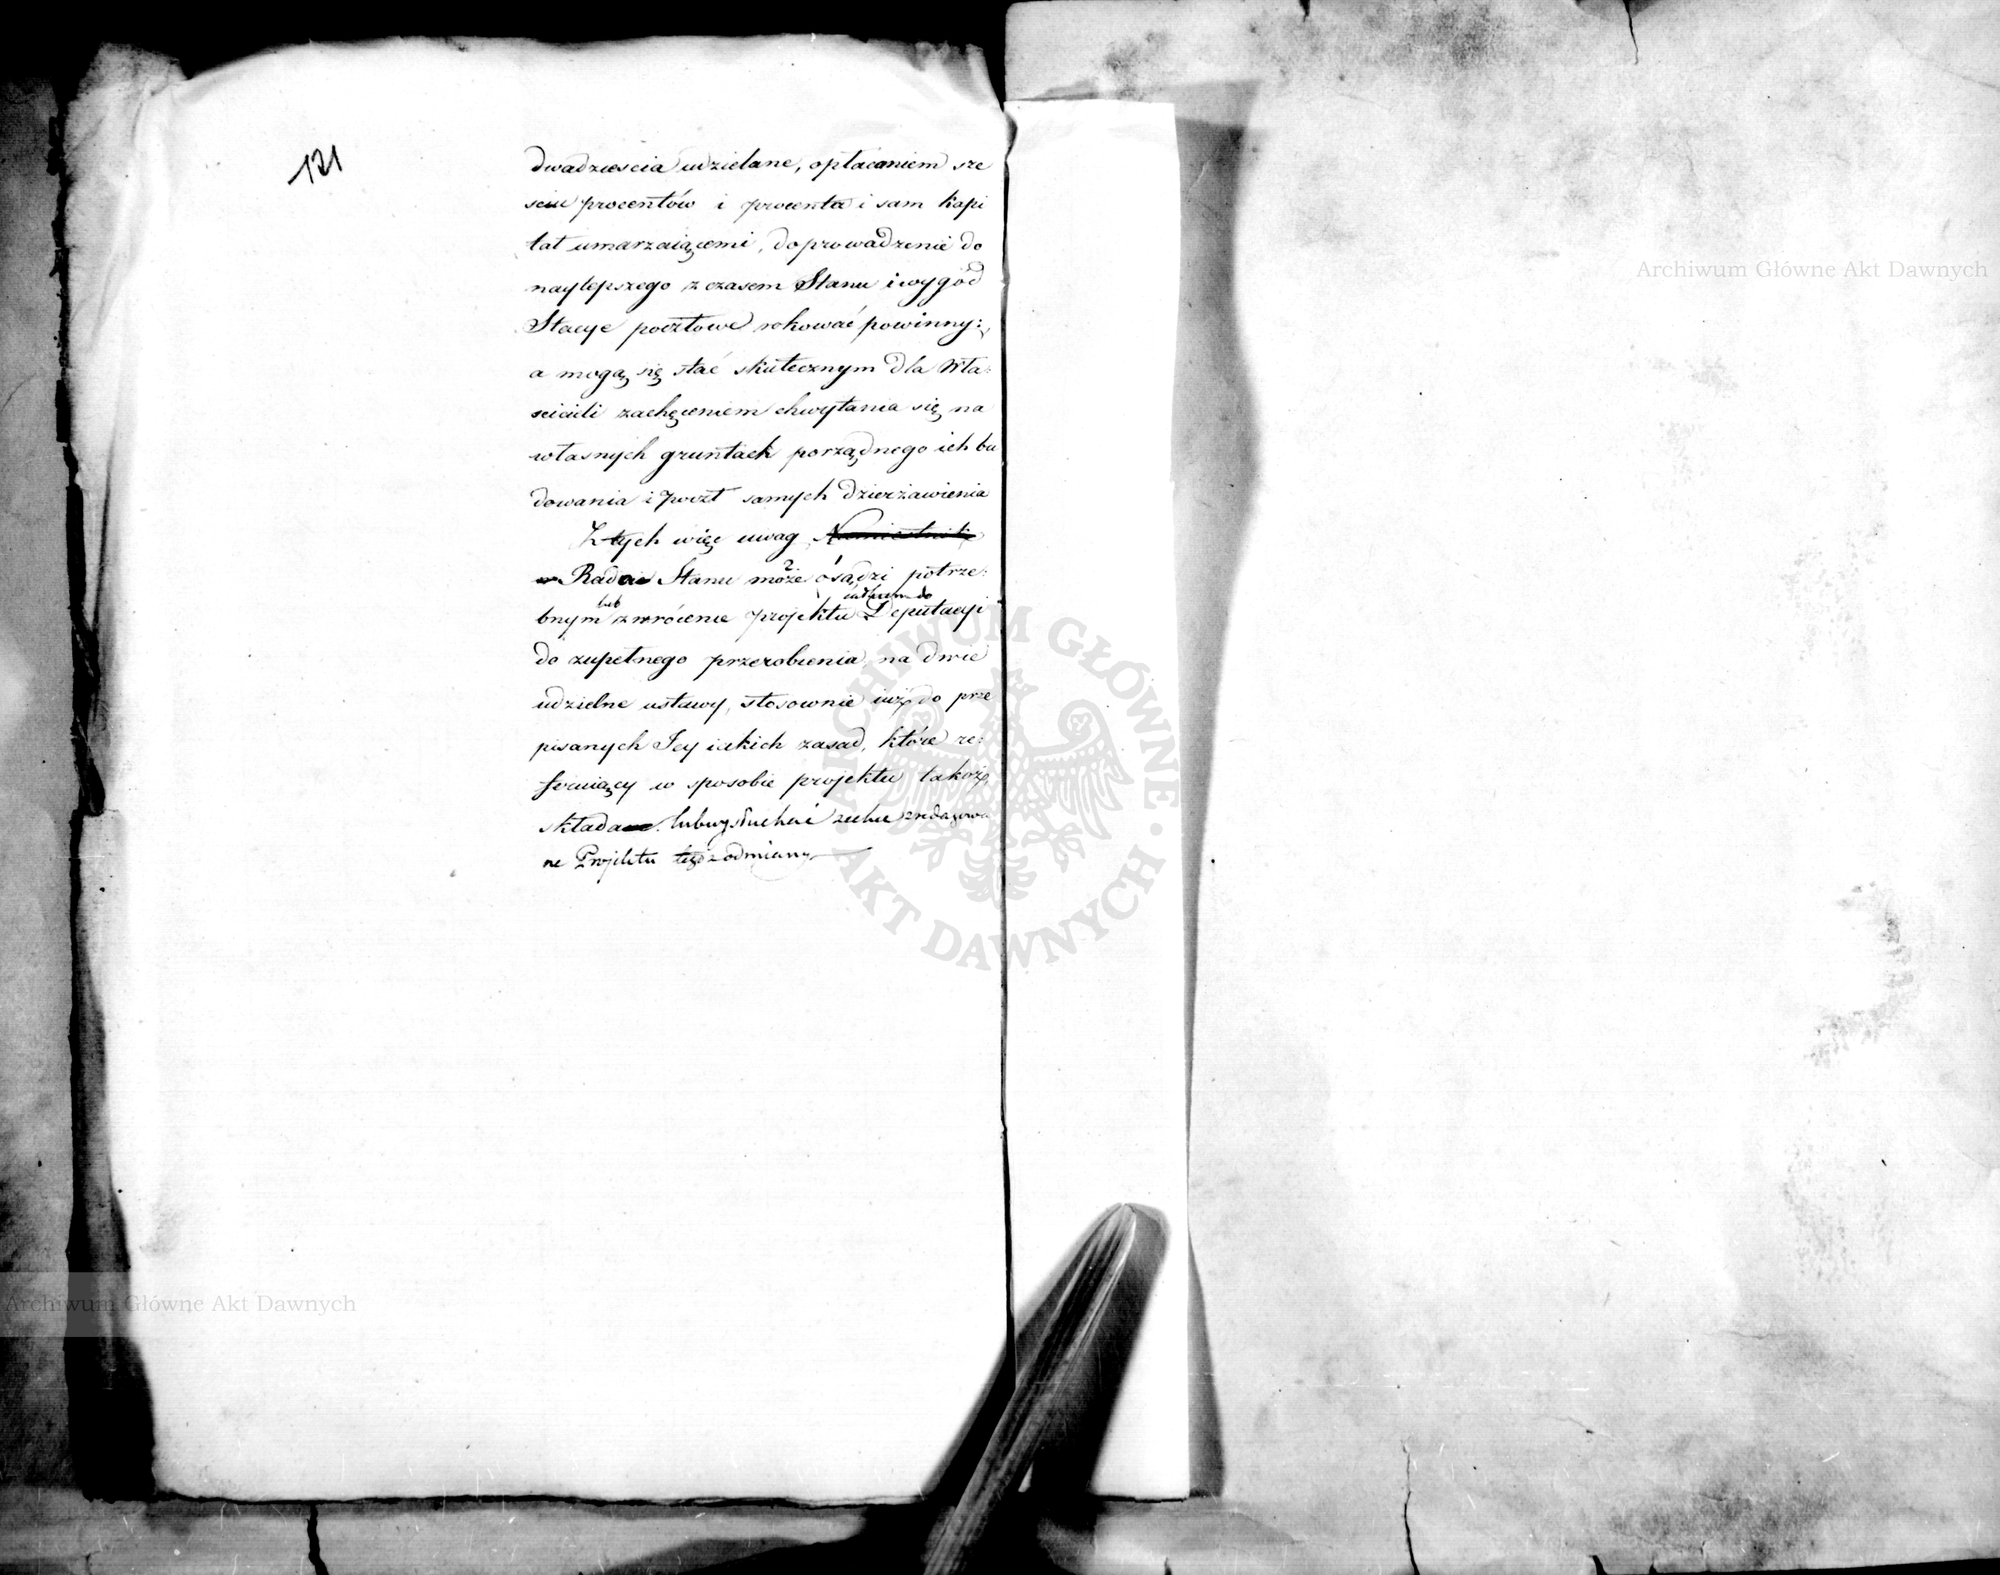 121
dwadziescia udzielane, opłacaniem sze
sciu procentów i procenta i sam kapi
tał umarzaiącemi, doprowadzenie do
naylepszego z czasem Stanu i wygód
Stacye pocztowe rokować powinny:,
a mogą się stać skutecznym dla Wła:
scicieli zachęceniem chwytania się na
własnych gruntach porządnego ich bu
dowania i poczt samych dzierżawienia
Z tych więc uwag Namiestnik
w Radzie Stanu może osądzi potrze:
lub
bnym zwrócenie projektu Deputacyi
do zupełnego przerobienia, na dwie
udzielne ustawy, stosownie iuż do prze
pisanych Jey iakich zasad, które re:
w sposobie projektu takoż,
składa lub wysłuchać zredagowa
ne Projektu z odmiany
Archiwum Główne Akt Dawnych
Archiwum Główne Akt Dawnych
ARCHIWUM GŁÓWNE · AKT DAWNYCH ·